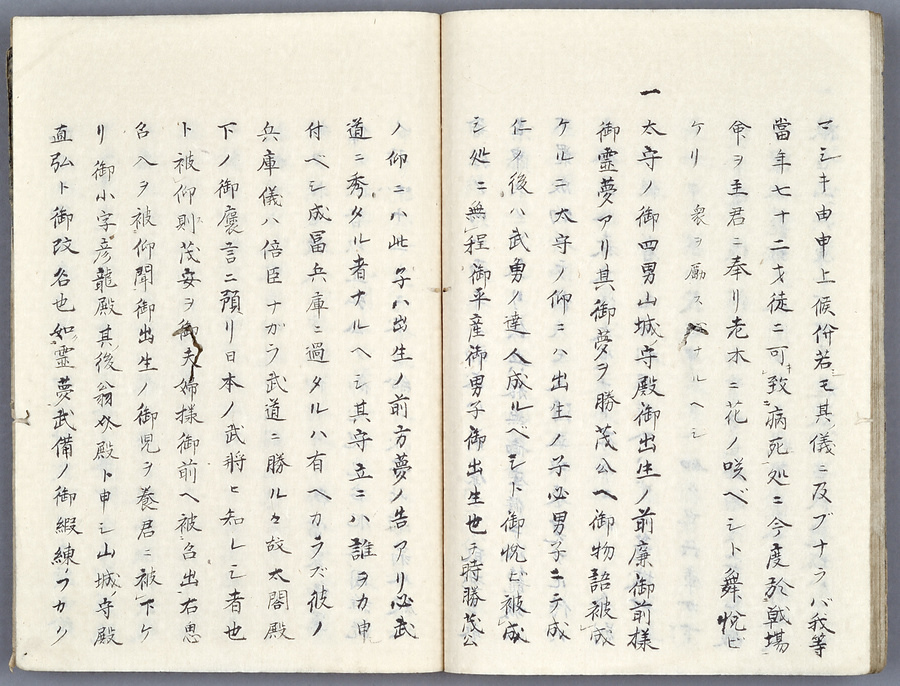 マシキ由申上候併若モ其儀ニ及ブナラバ我等
當年七十二才徒ニ可致病死処ニ今度於戦場
命ヲ主君ニ奉リ老木ニ花ノ咲ベシト舞悦ビ
ケリ 衆ヲ励ス ナルヘシ
一 太守ノ御四男山城守殿御出生ノ前廉御前様
御霊夢アリ其御夢ヲ勝茂公ヘ御物語被成
ケル 太守ノ仰ニハ出生ノ子必男子ニテ成
仁ノ後ハ武勇ノ達人成ルベシト御悦ビ被成
シ処ニ無程御平産御男子御出生也 時勝茂公
ノ仰ニハ此子ハ出生ノ前方夢ノ告アリ必武
道ニ秀タル者ナルヘシ其守立ニハ誰ヲカ申
付ベシ成冨兵庫ニ過タルハ有ヘカラズ彼ノ
兵庫儀ハ倍臣ナガラ武道ニ勝ル々故太閤殿
下ノ御褒言ニ預リ日本ノ武将ヒ知レシ者也
ト被仰則茂安ヲ御夫婦様御前ヘ被召出右思
召入ヲ被仰聞御出生ノ御児ヲ養君ニ被下ケ
リ御小字彦龍殿其後翁介殿ト申シ山城守殿
直弘ト御改名也如霊夢武備ノ御鍛練フカク